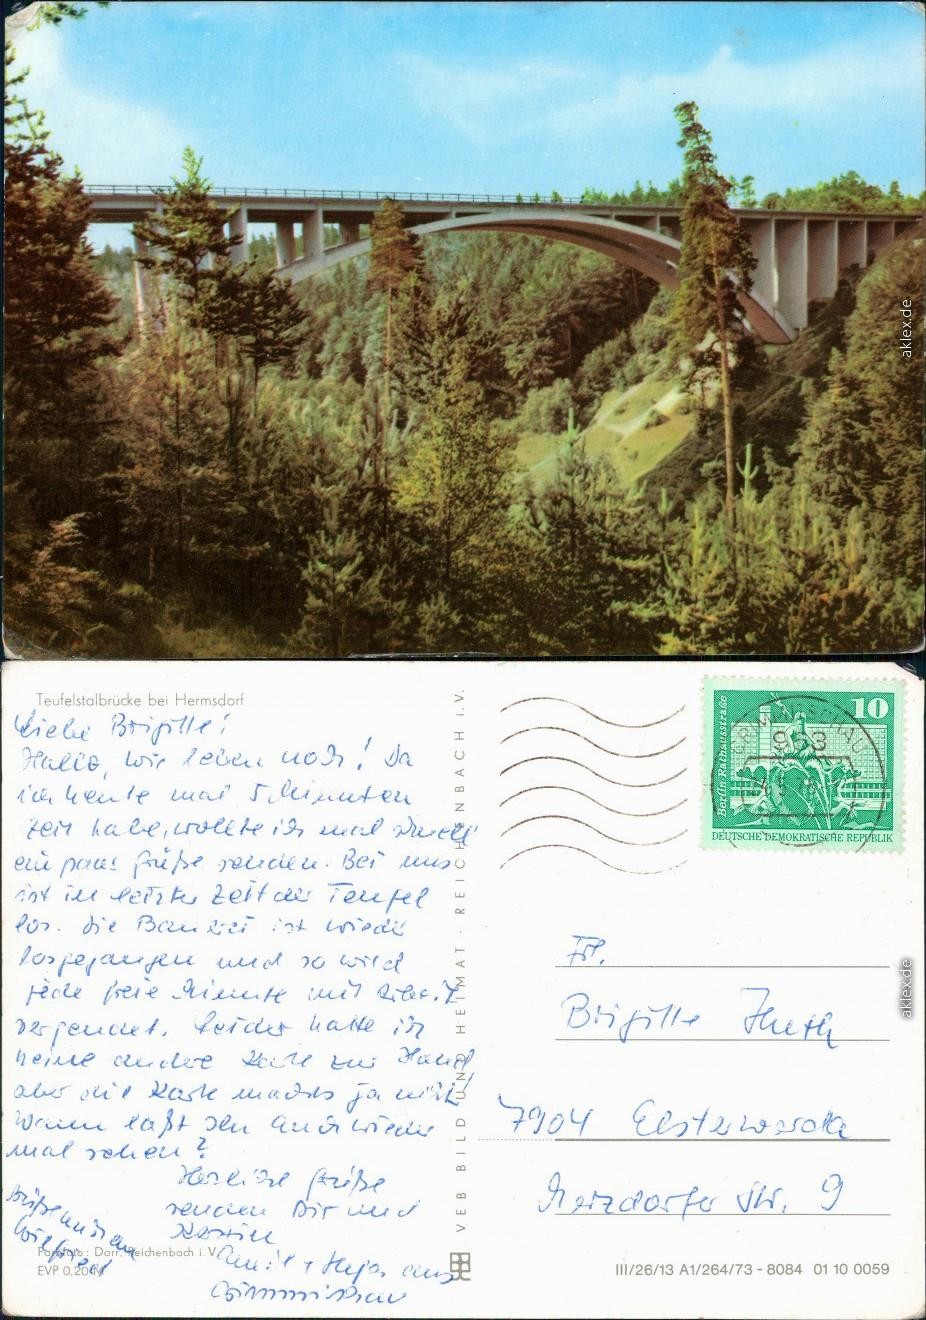 aklex.de
Teufelstalbrücke bei Hermsdorf
Liebe Brigitte!
Hallo, wir leben noch! Da
ich heute mal 5 Minuten
Zeit habe, wollte ich mal schnell
ein paar Grüße senden. Bei uns
ist in letzter Zeit der Teufel
los. Die Bauerei ist wieder
losgegangen und so wird
jede freie Minute mit Arbeit
vergeudet. Leider hatte ich
keine andre Karte zur Hand,
aber die Karte machts ja nicht!
Wann laßt Ihr Euch wieder
mal sehen?
Herzliche Grüße
senden Dir und
Wilfried
aus
Crimmitschau
Grüße
Farbfoto: Darr, Reichenbach i. V.
EVP 0,20 M
VEB BILD UND HEIMAT · REICHENBACH i. V.
Berlin Rathausstraße
10
DEUTSCHE DEMOKRATISCHE REPUBLIK
CRIMMITSCHAU
963
Frl.
Brigitte Huth
7904 Elsterwerda
Merzdorfer Str. 9
aklex.de
III/26/13 A1/264/73 - 8084 01 10 0059